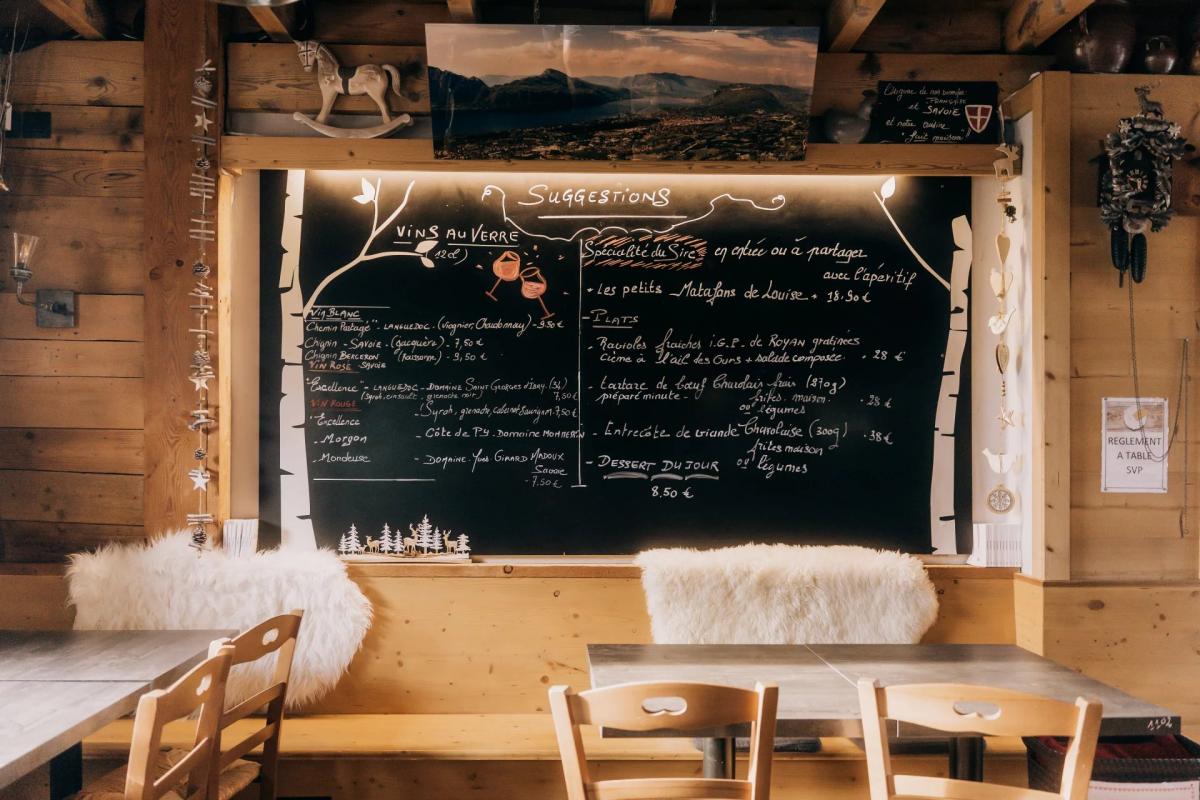 SUGGESTIONS
VINS AU VERRE
12cl)
VIN BLANC
Chemin Partagé" - LANGUEDOC - (Viognier, Chardonnay) - 9,50 €
Chignin - SAVOIE - (Jacquère) - 7,50 €
Chignin BERGERON (Roussanne) - 9,50 €
VIN ROSÉ SAVOIE
"Excellence" - LANGUEDOC - DOMAINE SAINT GEORGES d'IBRY. (34)
(Syrah, cinsault, grenache noir) 7,50 €
VIN ROUGE
- (Syrah, grenache, cabernet Sauvignon - 7,50 €
"Excellence
- Morgon - Côte de PY - Domaine MOMMESSIN
- Mondeuse - DOMAINE Yves GIRARD MADOUX
Savoie
- 7,50 €
Spécialité du Sire en entrée ou à partager
avec l'apéritif
• Les petits Matafans de Louise • 18,90 €
- PLATS
- Ravioles fraîches i.G.P. de ROYAN gratinées
Crème à l'ail des Ours + salade composée • 28 €
- tartare de bœuf Charolais frais (270g)
préparé minute - frites maison • 28 €
ou légumes
- Entrecôte de viande Charolaise (300g) • 38 €
frites maison
ou légumes
- DESSERT DU JOUR
8,50 €
L'origine de nos viandes:
FRANÇAISE
et SAVOIE
et notre cuisine
"fait maison"
REGLEMENT
A TABLE
SVP